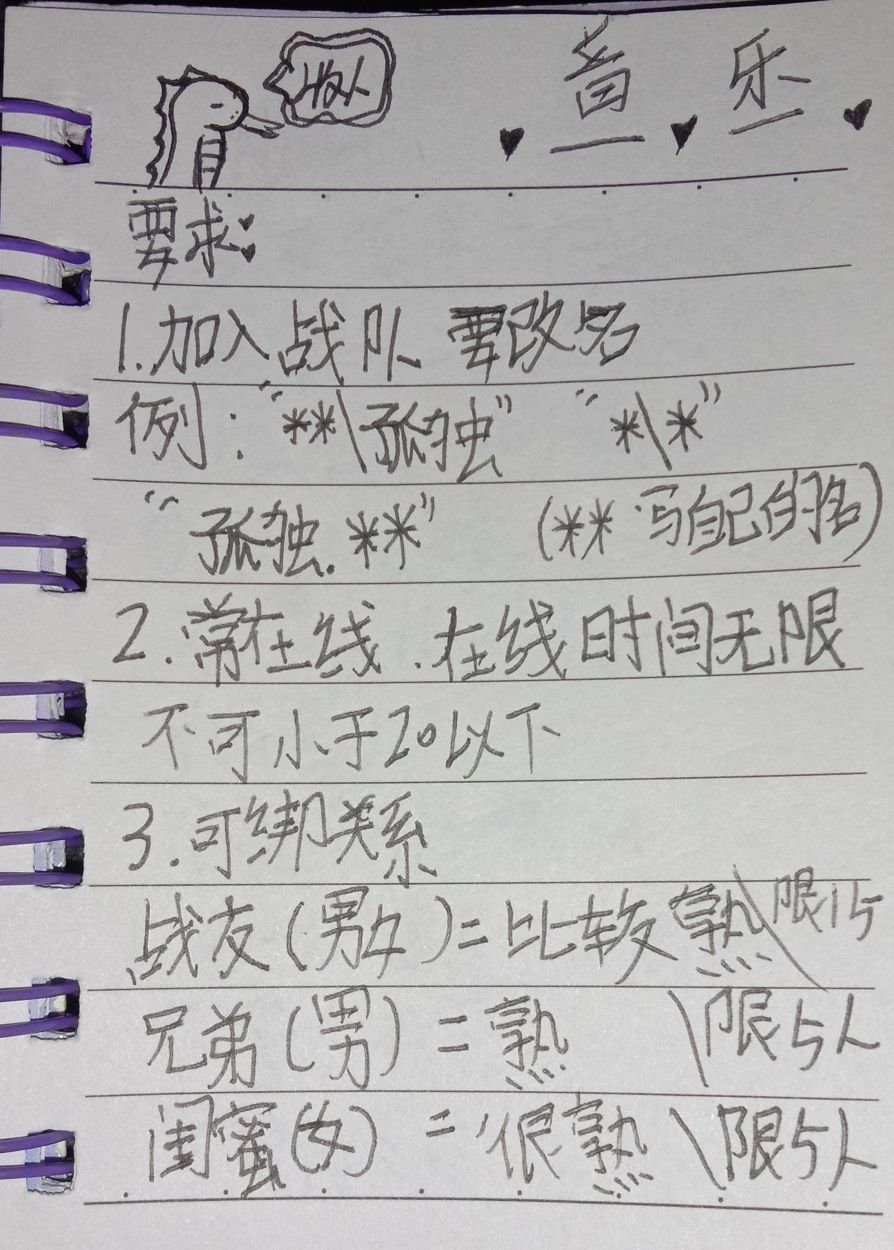 收人
音乐
要求:
1.加入战队 要改名
例:"**\孤独" "*\*"
"孤独.**" (**写自己的名)
2.常在线.在线时间无限
不可小于20以下
3.可绑关系
战友(男女)=比较熟\限15
兄弟(男)=熟 \限5人
闺蜜(女)=很熟\限5人